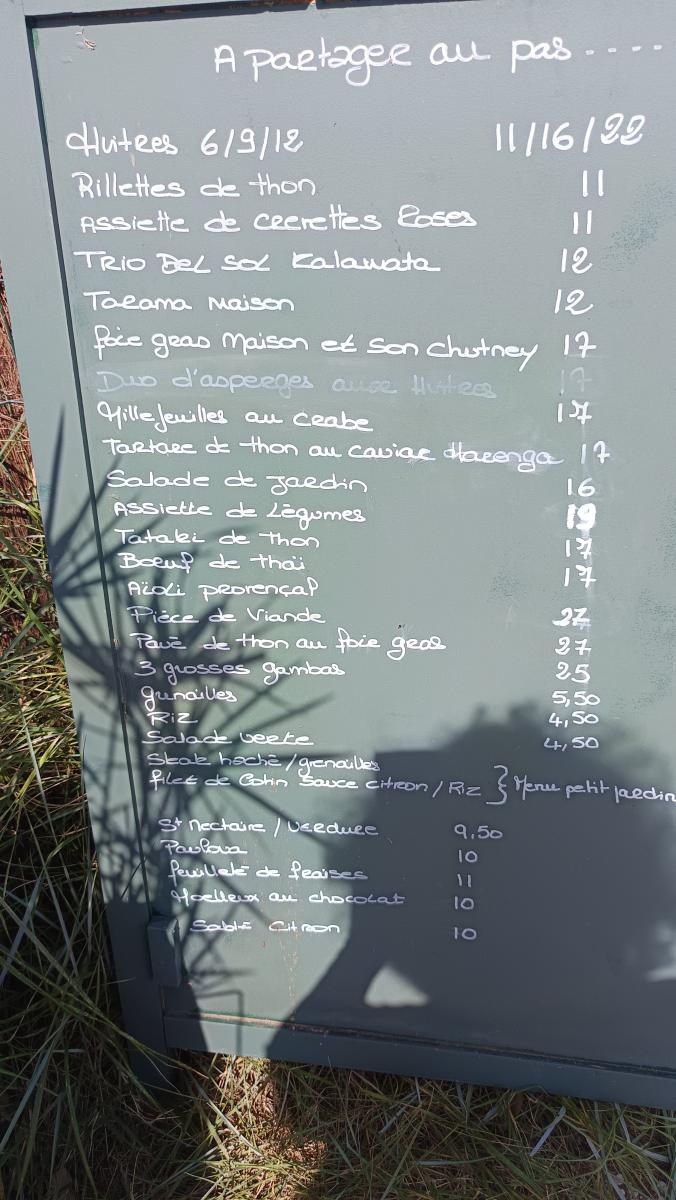 A partager au pas ....
Huitres 6/9/12 11/16/22
Rillettes de thon 11
Assiette de crevettes Roses 11
TRIO DEL SOL Kalamata 12
Tarama Maison 12
foie gras Maison et son chutney 17
Duo d'asperges aux Huitres 17
Millefeuilles au crabe 17
Tartare de thon au caviar Harenga 17
Salade de Jardin 16
Assiette de Légumes 19
Tataki de thon 17
Boeuf de thaï 17
Aïoli provençal
Pièce de Viande 27
Pavé de thon au foie gras 27
3 grosses gambas 25
grenailles 5,50
Riz 4,50
Salade verte 4,50
Steak haché/grenailles
filet de Colin sauce citron/Riz } Menu petit jardin
St Nectaire/Verdure 9,50
Pavlova 10
feuilleté de fraises 11
Moelleux au chocolat 10
Sablé Citron 10